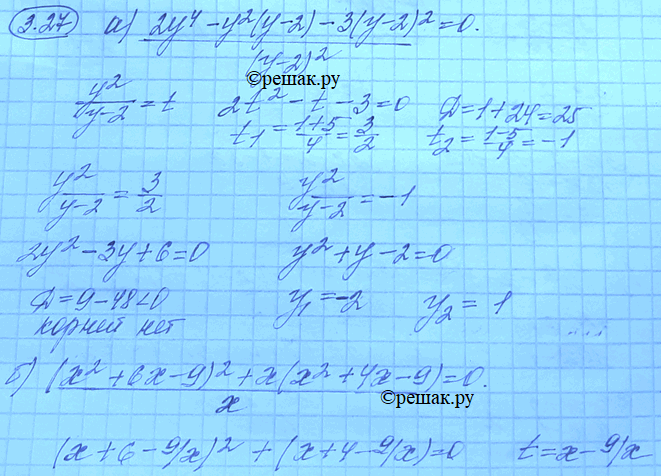 3.27 а) 2y⁴ - y²(y-2) - 3(y-2)² = 0.
(y-2)²
©решак.ру
y²/(y-2) = t 2t² - t - 3 = 0 D = 1 + 24 = 25
t₁ = (1+5)/4 = 3/2 t₂ = (1-5)/4 = -1
y²/(y-2) = 3/2 y²/(y-2) = -1
2y² - 3y + 6 = 0 y² + y - 2 = 0
D = 9 - 48 < 0 y₁ = -2 y₂ = 1
корней нет ....
б) (x² + 6x - 9)² + x(x² + 4x - 9) = 0.
x
©решак.ру
(x + 6 - 9/x)² + (x + 4 - 9/x) = 0 t = x - 9/x